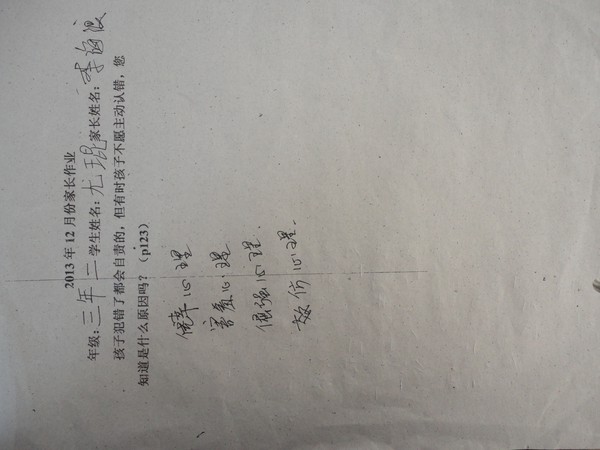 2013 年 12 月份家长作业
年级:三年二学生姓名:尤琨家长姓名:李海波
孩子犯错了都会自责的,但有时孩子不愿主动认错,您
知道是什么原因吗?(p123)
侥幸心理
害羞心理
倔强心理.
效仿心理.